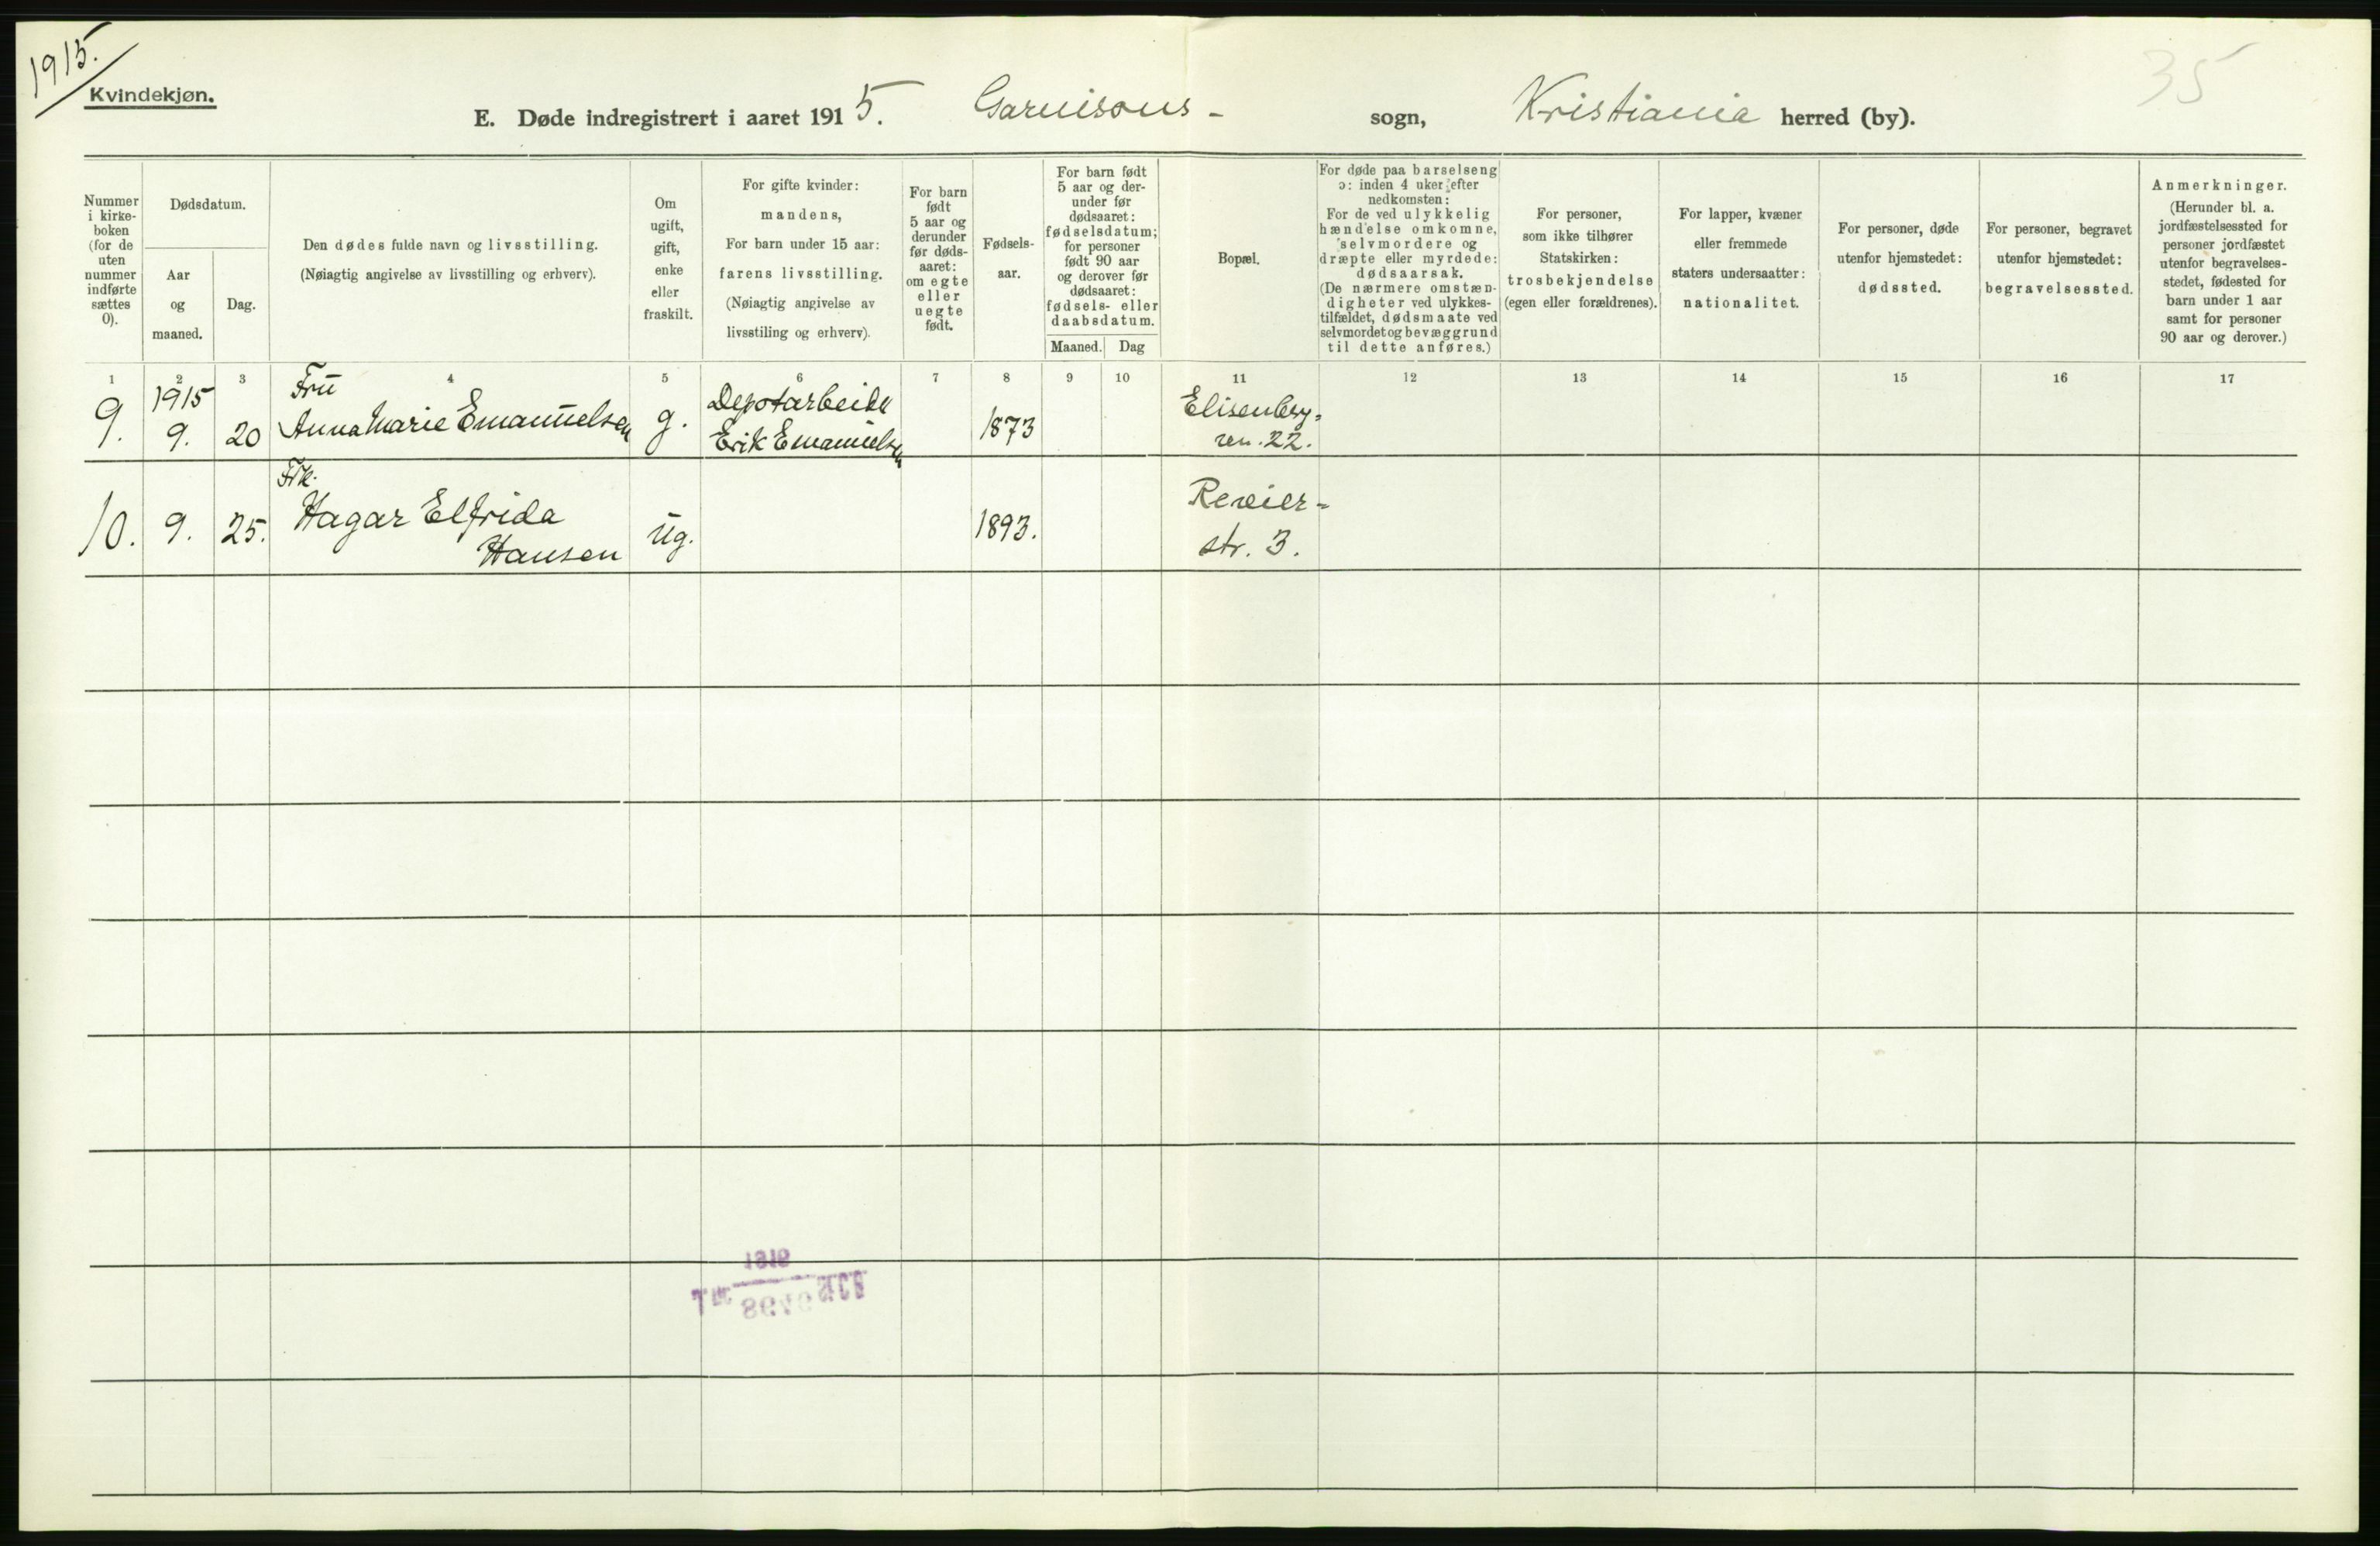 1915.
35
Kvindekjøn.
E. Døde indregistrert i aaret 1915. Garnisons- sogn, Kristiania herred (by).
Nummer
i kirke-
boken
(for de
uten
nummer
indførte
sættes
0).
Dødsdatum.
Aar
og
maaned.
Dag.
Den dødes fulde navn og livsstilling.
(Nøiagtig angivelse av livsstilling og erhverv).
Om
ugift,
gift,
enke
eller
fraskilt.
For gifte kvinder:
mandens,
For barn under 15 aar:
farens livsstilling.
(Nøiagtig angivelse av
livsstiling og erhverv).
For barn
født
5 aar og
derunder
før døds-
aaret:
om egte
eller
uegte
født.
Fødsels-
aar.
For barn født
5 aar og der-
under før
dødsaaret:
fødselsdatum;
for personer
født 90 aar
og derover før
dødsaaret:
fødsels- eller
daabsdatum.
Maaned. Dag
Bopæl.
For døde paa barselseng
ɔ: inden 4 uker efter
nedkomsten:
For de ved ulykkelig
hændelse omkomne,
selvmordere og
dræpte eller myrdede:
dødsaarsak.
(De nærmere omstæn-
digheter ved ulykkes-
tilfældet, dødsmaate ved
selvmordet og bevæggrund
til dette anføres.)
For personer,
som ikke tilhører
Statskirken:
trosbekjendelse
(egen eller forældrenes).
For lapper, kvæner
eller fremmede
staters undersaatter:
nationalitet.
For personer, døde
utenfor hjemstedet:
dødssted.
For personer, begravet
utenfor hjemstedet:
begravelsessted.
Anmerkninger.
(Herunder bl. a.
jordfæstelsessted for
personer jordfæstet
utenfor begravelses-
stedet, fødested for
barn under 1 aar
samt for personer
90 aar og derover.)
1 2 3 4 5 6 7 8 9 10 11 12 13 14 15 16 17
1915 Fru Depotarbeider Elisenberg=
9. 9. 20 Anna Marie Emanuelsen g. Erik Emanuelsen 1873 ven. 22.
Frk.
10. 9. 25. Hagar Elfrida ug. 1893. Revier=
Hansen str. 3.